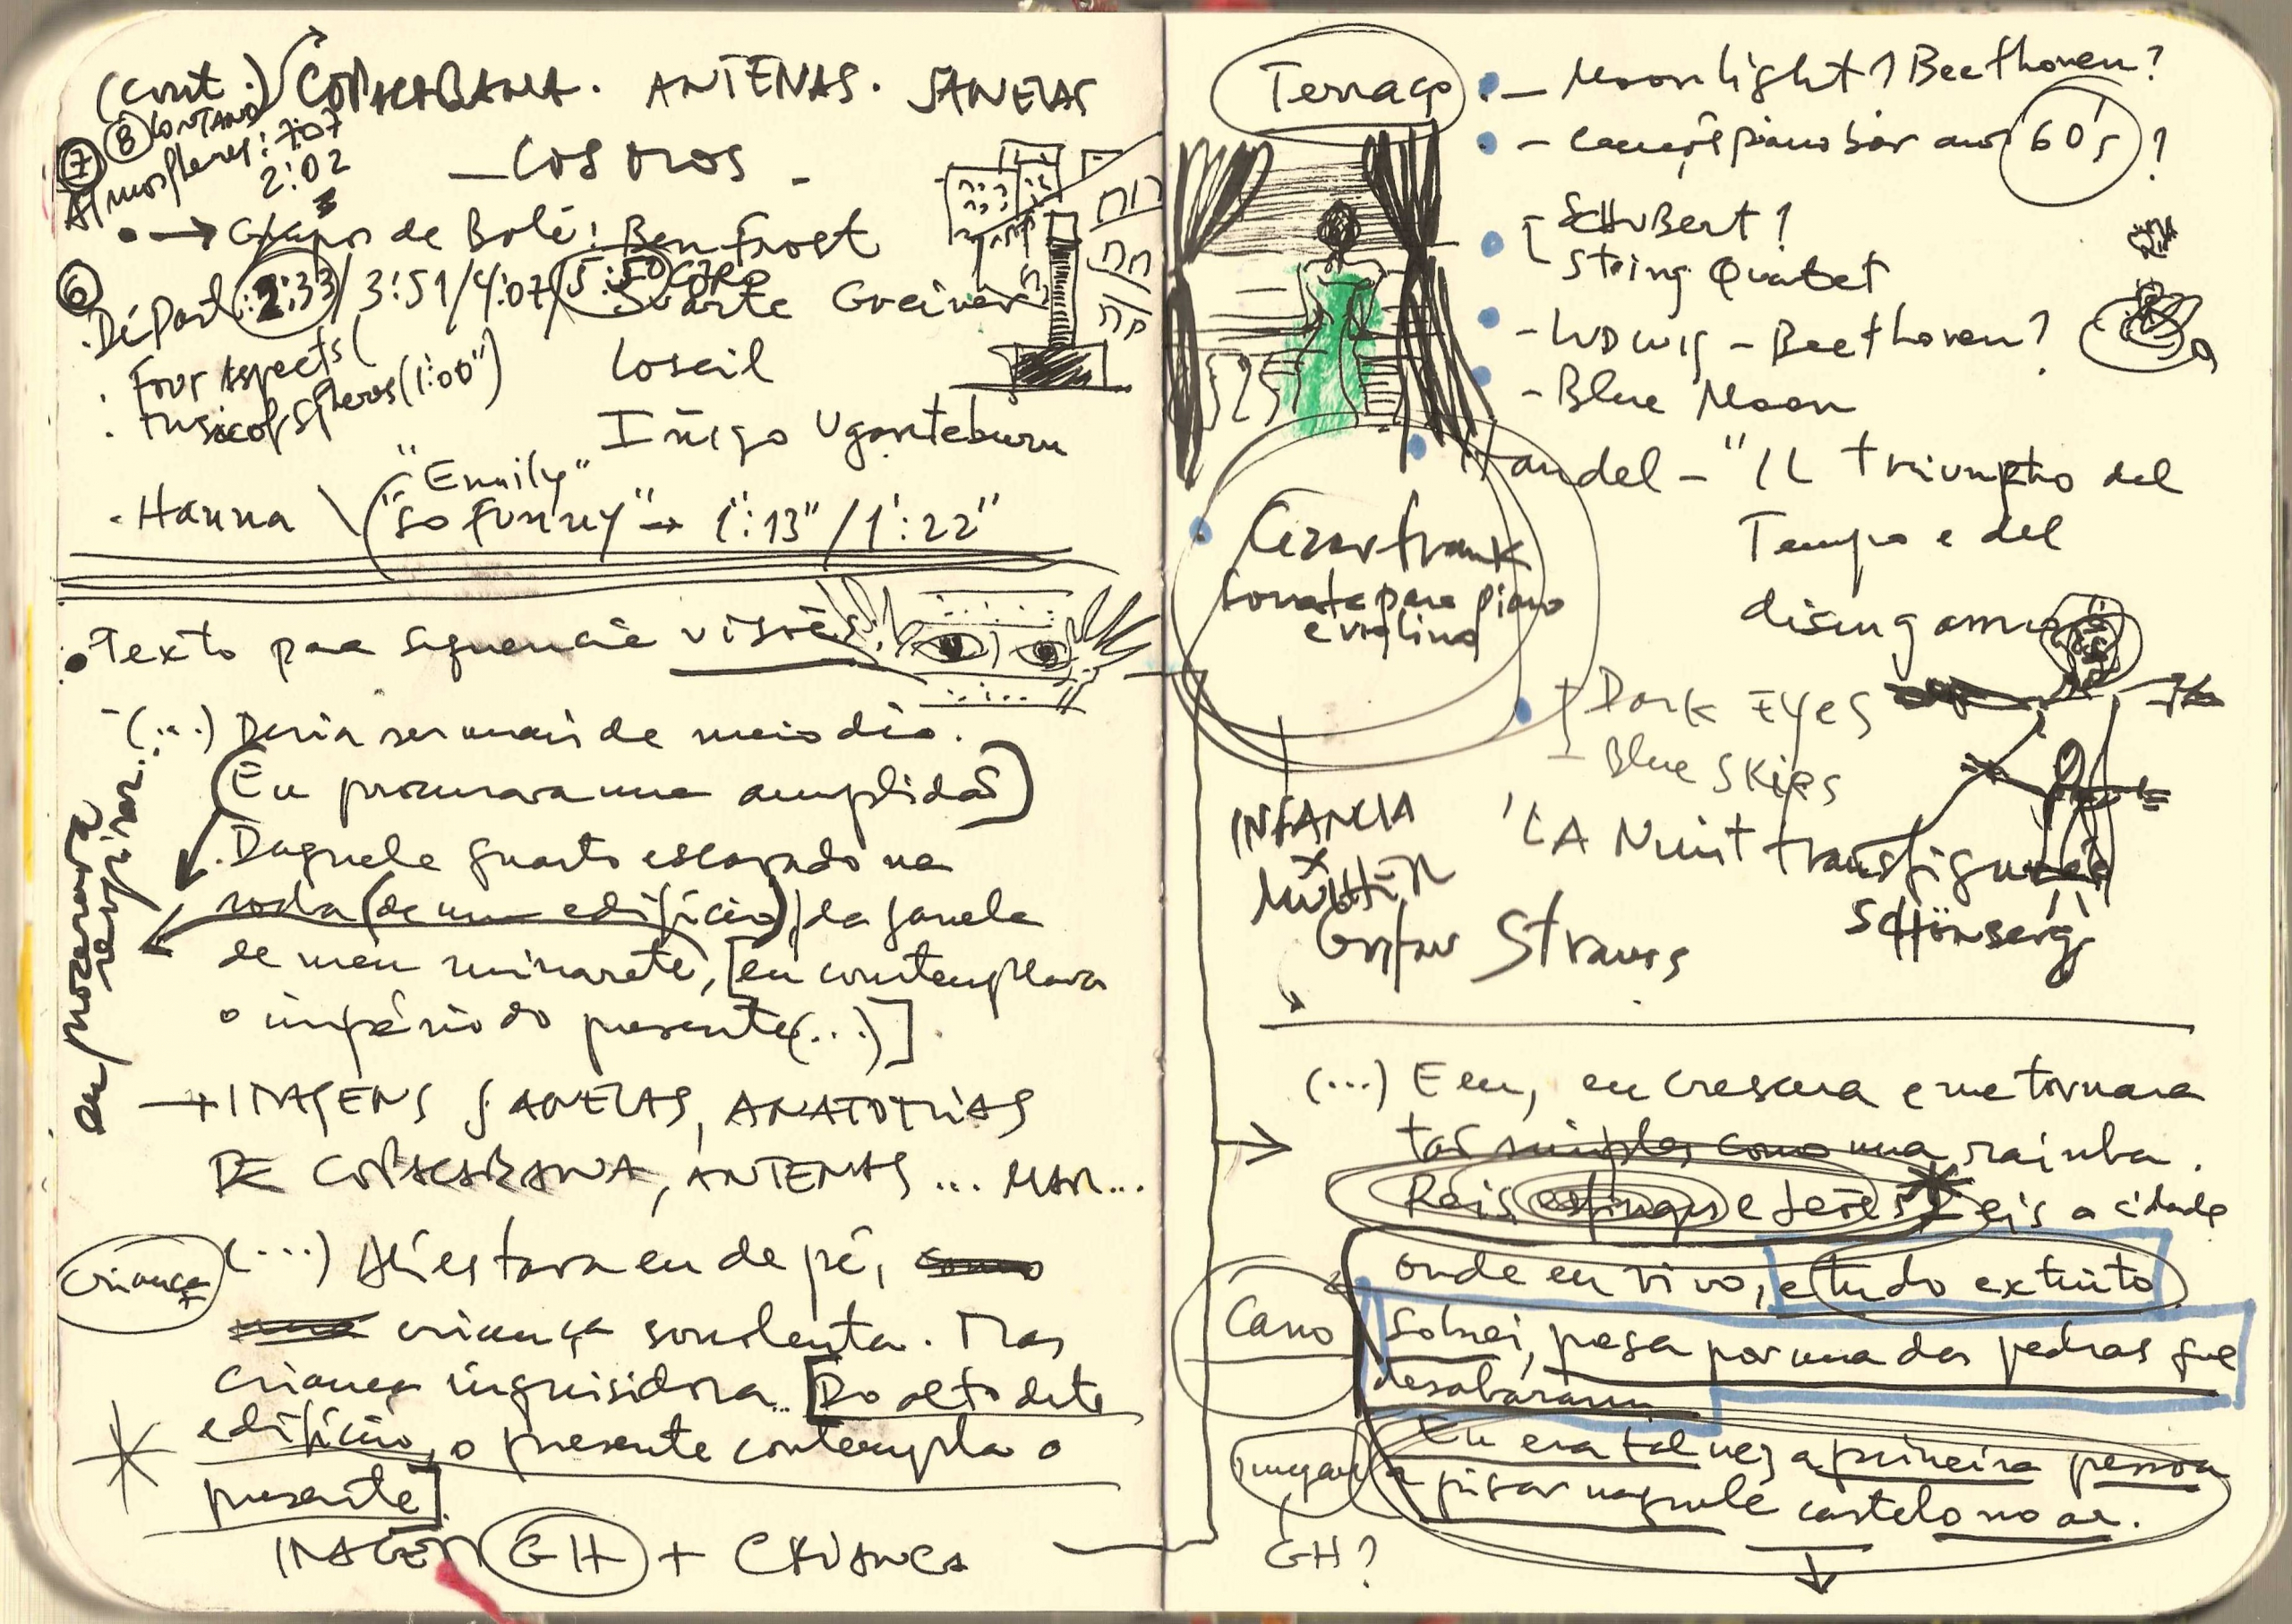 (Cont.) COPACABANA. ANTENAS. JANELAS
⑦ ⑧ CONTANDO
Atmospheres: 7:07
2:02
• → de Bolé: Ben Frost
⑥
Départ: 2:33 / 3:51 / 4:07 / 5:50
Svarte Greiner
. Four Aspects (
. Music of Spheres (1':00")
Loscil
Iñigo Ugarteburu
"Emily"
. Hanna \ ("So Funny" → 1':13" / 1':22"
. Texto para sequencia visões
- (...) Devia ser mais de meio dia.
(Eu procurava uma amplidão)
eu procurava respirar...
. Daquele quarto escavado na
rocha (de um edifício), da janela
de meu minarete, [eu contemplava
o império do presente (...)].
→ IMAGENS JANELAS, ANATOMIAS
DE COPACABANA, ANTENAS... MAR...
Criança
(...) Ali estava eu de pé, como
uma criança sonolenta. Mas
criança inquisidora.. [Do alto deste
edifício, o presente contempla o
presente].
IMAGEM GH + CRIANCA
Terraço
. - Moonlight? Beethoven?
- piano bar anos 60's?
- Schubert?
String Quartet
- Ludwig - Beethoven?
- Blue Moon
Handel - "Il triumpho del
Tempo e del
disinganno
Cezar Frank
Sonata para piano
e violino
- Dark Eyes
- Blue Skies
INFANCIA
x
MULHER
'LA Nuit transfigurée
SCHÖNBERG
Strauss
(...) E eu, eu crescera e me tornara
tão simples como uma rainha.
Reis, esfinges e leões * Eis a cidade
onde eu vivo, e tudo extinto
Sobrei, presa por uma das pedras que
desabaram.
Eu era talvez a primeira pessoa
a pisar naquele castelo no ar.
GH?